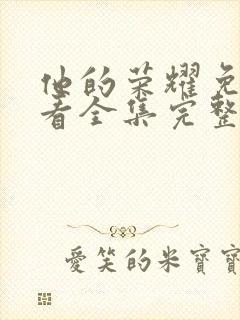 他的荣耀免
看全集完整
愛笑的米寶寶